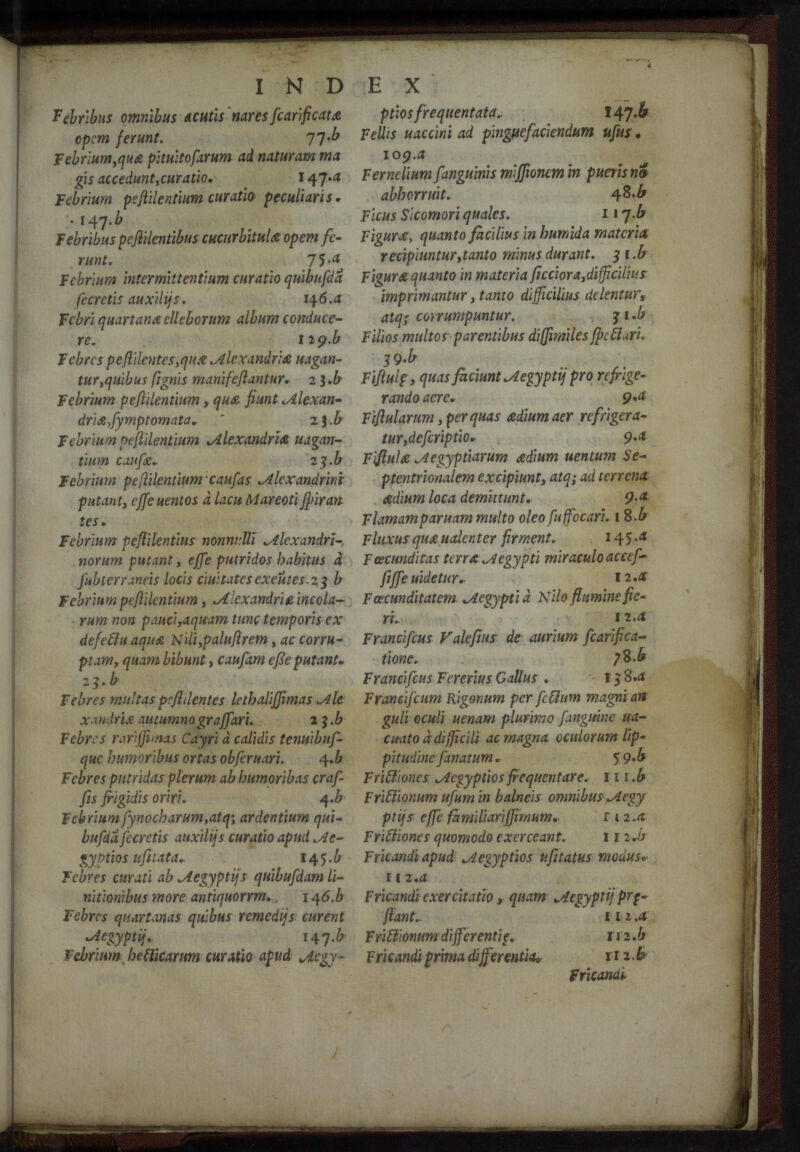 INDEX
Febribus omnibus acutis nares scarificatæ
opem ferunt. 77.b
Febrium,quæ pituitosarum ad naturam ma
gis accedunt,curatio. 147.a
Febrium pestilentium curatio peculiaris.
147.b
Febribus pestilentibus cucurbitulæ opem fe-
runt. 75.a
Febrium intermittentium curatio quibusdā
secretis auxilijs. 146.a
Febri quartanæ elleborum album conduce-
re. 129.b
Febres pestilentes,quæ Alexandriæ uagan-
tur,quibus signis manifestantur. 23.b
Febrium pestilentium, quæ fiunt Alexan-
driæ,symptomata. 23.b
Febrium pestilentium Alexandriæ uagan-
tium causæ. 23.b
Febrium pestilentium causas Alexandrini
putant, esse uentos à lacu Mareoti spiran
tes.
Febrium pestilentius nonnulli Alexandri-
norum putant, esse putridos habitus à
subterraneis locis ciuitates exeūtes.23 b
Febrium pestilentium, Alexandriæ incola-
rum non pauci,aquam tunc temporis ex
defectu aquæ Nili,palustrem, ac corru-
ptam, quam bibunt, causam esse putant.
23.b
Febres multas pestilentes lethalissimas Ale
xandriæ autumno grassari. 23.b
Febres rarissimas Cayri à calidis tenuibus-
que humoribus ortas obseruari. 4.b
Febres putridas plerum ab humoribas cras-
sis frigidis oriri. 4.b
Febrium synocharum,atq; ardentium qui-
busdā secretis auxilijs curatio apud Ae-
gyptios usitata. 145.b
Febres curati ab Aegyptijs quibusdam li-
nitionibus more antiquorrm. 146.b
Febres quartanas quibus remedijs curent
Aegyptij. 147.b
Febrium hecticarum curatio apud Aegy-
ptios frequentata. 147.b
Fellis uaccini ad pinguefaciendum usus.
109.a
Fernelium sanguinis missionem in pueris nō
abhorruit. 48.b
Ficus Sicomori quales. 117.b
Figuræ, quanto facilius in humida materia
recipiuntur,tanto minus durant. 31.b
Figuræ quanto in materia sicciora,difficilius
imprimantur, tanto difficilius delentur,
atq; corrumpuntur. 31.b
Filios multos parentibus dissimiles spectari.
39.b
Fistulę, quas faciunt Aegyptij pro refrige-
rando aere. 9.a
Fistularum, per quas ædium aer refrigera-
tur,descriptio. 9.a
Fistulæ Aegyptiarum ædium uentum Se-
ptentrionalem excipiunt, atq; ad terrena
ædium loca demittunt. 9.a
Flamam paruam multo oleo suffocari. 18.b
Fluxus quæ ualenter firment. 145.a
Fœcunditas terræ Aegypti miraculo acces-
sisse uidetur. 12.a
Fœcunditatem Aegypti à Nilo flumine fie-
ri. 12.a
Franciscus Valesius de aurium scarifica-
tione. 78.b
Franciscus Fererius Gallus. 138.a
Franciscum Rigonum per sectum magni an
guli oculi uenam plurimo sanguine ua-
cuato à difficili ac magna oculorum lip-
pitudine sanatum. 59.b
Frictiones Aegyptios frequentare. 111.b
Frictionum usum in balneis omnibus Aegy
ptijs esse familiarissimum. 112.a
Frictiones quomodo exerceant. 112.b
Fricandi apud Aegyptios usitatus modus.
112.a
Fricandi exercitatio, quam Aegyptij prę-
stant. 112.a
Frictionum differentię. 112.b
Fricandi prima differentia. 112.b
Fricandi